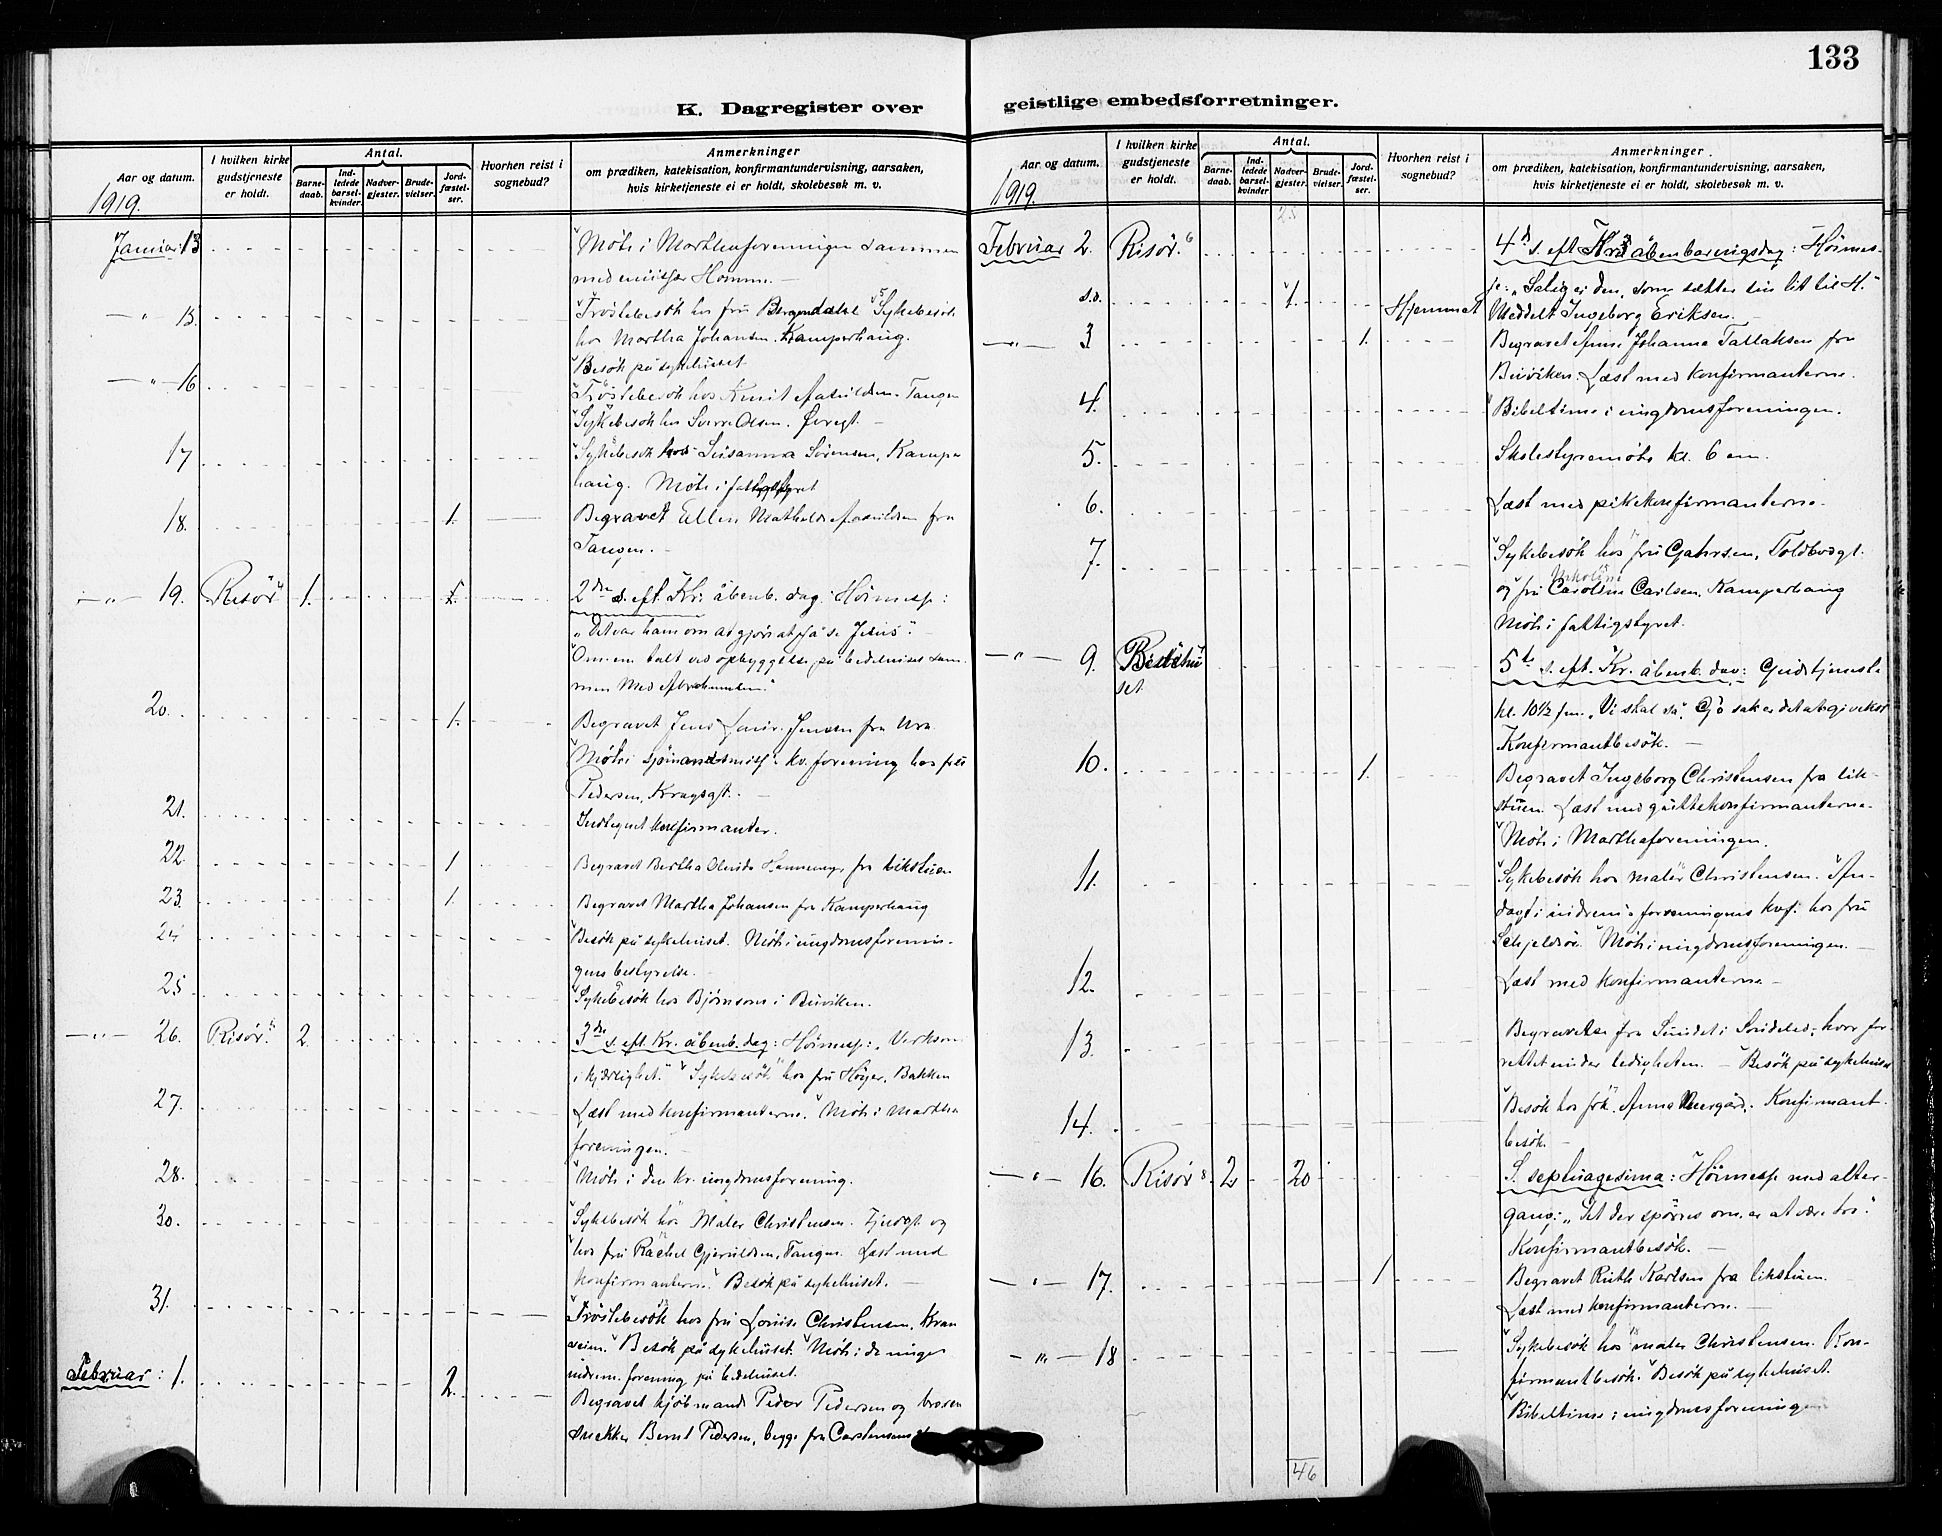 133
K. Dagregister over geistlige embedsforretninger.
Aar og datum.
1919.
I hvilken kirke gudstjeneste er holdt.
Antal.
Barnedaab.
Indledede barselkvinder.
Nadvergjester.
Brudevielser.
Jordfæstelser.
Hvorhen reist i sognebud?
Anmerkninger
om prædiken, katekisation, konfirmantundervisning, aarsaken,
hvis kirketjeneste ei er holdt, skolebesøk m. v.
Januar 13 Møte i Marthaforeningen sammen
med
— " — 15. Trøstebesøk hos fru Sykebesøk
hos Martha Johansen. Kamperhaug.
Besøk på sykehuset
— " — 16 Trøstebesøk hos Tangen
Sykebesøk hos Sverre Olsen.
17 Sykebesøk hos Susanna Sørensen, Kamper
haug. Møte i fattigstyret
18. 1. Begravet Ellen fra
Tangen. —
— " — 19. Risør 1. 1. 2den s. eft. Kr. åbenb. dag: Høimesse:
"Det var ham om at gjøre at få se Jesus".
på bedehuset sam-
men med
20. 1. Begravet Jens Jensen fra Ura
Møte i sjømandsmisj. kv.forening hos fru
Pedersen, Kragsgt. —
21. Indtegnet konfirmanter.
22. 1 Begravet Bertha fra likstuen
23. 1. Begravet Martha Johansen fra Kamperhaug
24 Besøk på sykehuset. Møte i ungdomsforenin-
gens bestyrelse.
25 Sykebesøk hos Bjørnsons i Buviken.
— " — 26. Risør. 2. 3die s. eft. Kr. åbenb. dag: Høimesse: "Virksom
i kjærlighet." Sykebesøk hos fru Høyer, Bakken
27. Læst med konfirmanterne. Møte i Martha
foreningen. —
28. Møte i den kr. ungdomsforening.
30. Sykebesøk hos Maler Christensen. og
hos fru Rachel Gjeruldsen, Tangen. Læst med
konfirmanterne. Besøk på sykehuset.
31. Trøstebesøk hos fru Lovise Christensen, Kran
veien. Besøk på sykehuset. Møte i de unges
indrem. forening på bedehuset.
Februar: 1. 2. Begravet kjøbmand Peder Pedersen og broren
snekker Bernt Pedersen, begge fra
Aar og datum.
1919.
I hvilken kirke gudstjeneste er holdt.
Antal.
Barnedaab.
Indledede barselkvinder
Nadvergjester.
Brudevielser.
Jordfæstelser.
Hvorhen reist i sognebud?
Anmerkninger.
om prædiken, katekisation, konfirmantundervisning, aarsaken,
hvis kirketjeneste ei er holdt, skolebesøk m. v.
Februar 2. Risør. 4d s. eft. Kr. åbenbaringsdag: Høimes-
se: "Salig er den, som sætter sin lit til H."
s.d. 1. Hjemmet Meddelt Ingeborg Eriksen.
— " — 3 1. Begravet Anne Johanne Tallaksen fra
Buviken. Læst med konfirmanterne.
4. Bibeltime i ungdomsforeningen.
5. Skolestyremøte kl. 6 em.
6. Læst med pikekonfirmanterne.
7. Sykebesøk hos fru Gahrsen, Toldbodgt.
og fru Caroline Carlsen. Kamperhaug
Møte i fattigstyret.
— " — 9. Bedehu
set 5te s. eft. Kr. åbenb. dag: Gudstjeneste
kl. 10 1/2 fm. "Vi skal så, Gj's sak er det at gi vekst
Konfirmantbesøk. —
10. 1. Begravet Ingeborg Christensen fra lik-
stuen. Læst med guttekonfirmanterne.
Møte i Marthaforeningen.
11. Sykebesøk hos maler Christensen. An-
dagt i indrem. foreningens kvf. hos fru
Møte i ungdomsforeningen. —
12. Læst med konfirmanterne. —
13. Begravelse fra Sundet i Søndeled, hvor for-
rettet under ledigheten. — Besøk på sykehuset
14. Besøk hos frk. Anna Konfirmant-
besøk. —
— " — 16. Risør 2 20 S. septuagesima: Høimesse med alter-
gang: "Det der spørres om, er at være tro."
Konfirmantbesøk. —
— " — 17. 1 Begravet Ruth Karlsen fra likstuen.
Læst med konfirmanterne. —
— " — 18 Sykebesøk hos maler Christensen. Kon-
firmantbesøk. Besøk på sykehuset.
Bibeltime i ungdomsforeningen
46